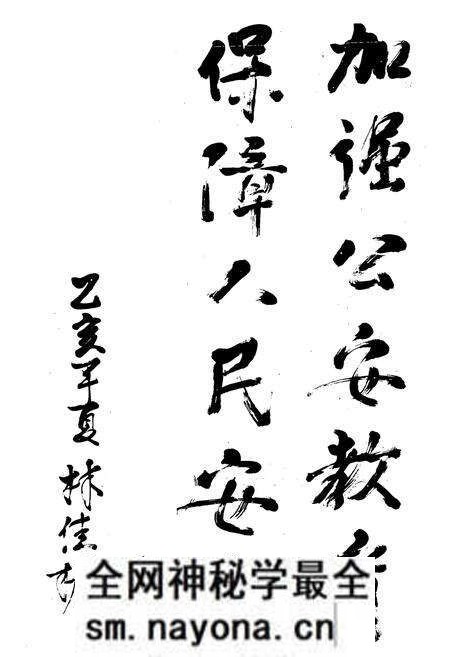 加强公安教
保障人民安
乙亥年夏 林佳
全网神秘学最全
sm.nayona.cn